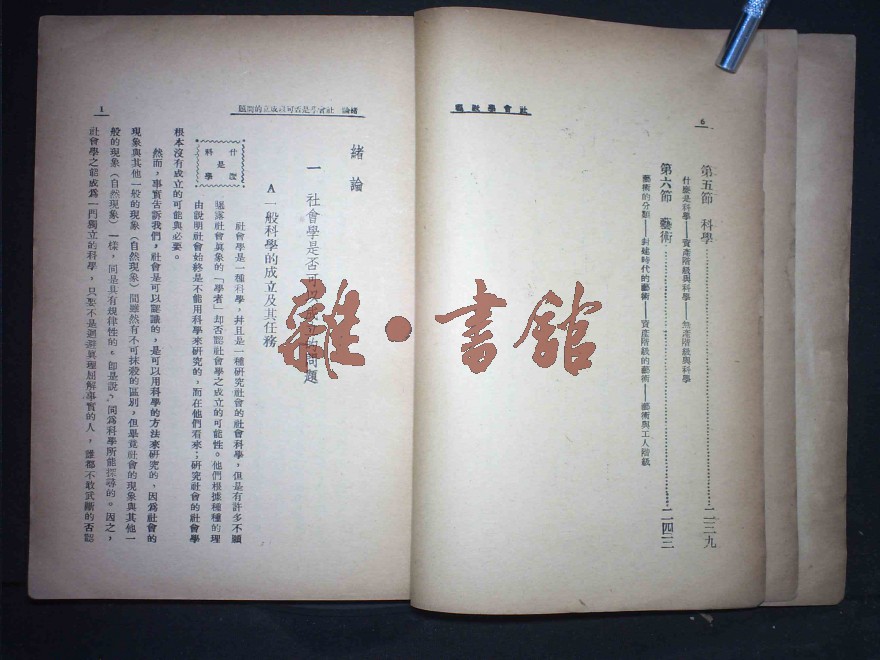 6
社會學教程
第五節 科學……二三九
什麼是科學——資產階級與科學——無產階級與科學
第六節 藝術……二四三
藝術的分類——封建時代的藝術——資產階級的藝術——藝術與工人階級
雜·書館
緒論 社會學是否可以成立的問題
1
緒論
一 社會學是否可以成立的問題
A 一般科學的成立及其任務
什麼是科學
社會學是一種科學,幷且是一種研究社會的社會科學,但是有許多不願
曝露社會眞象的「學者」却否認社會學之成立的可能性。他們根據種種的理
由說明社會始終是不能用科學來研究的,而在他們看來;研究社會的社會學
根本沒有成立的可能與必要。
然而,事實告訴我們,社會是可以認識的,是可以用科學的方法來研究的,因爲社會的
現象與其他一般的現象(自然現象)間雖然有不可抹殺的區別,但畢竟社會的現象與其他一
般的現象(自然現象)一樣,同是具有規律性的。卽是說,同爲科學所能探尋的。因之,
社會學之能成爲一門獨立的科學,只要不是迴避眞理屈解事實的人,誰都不敢武斷的否認